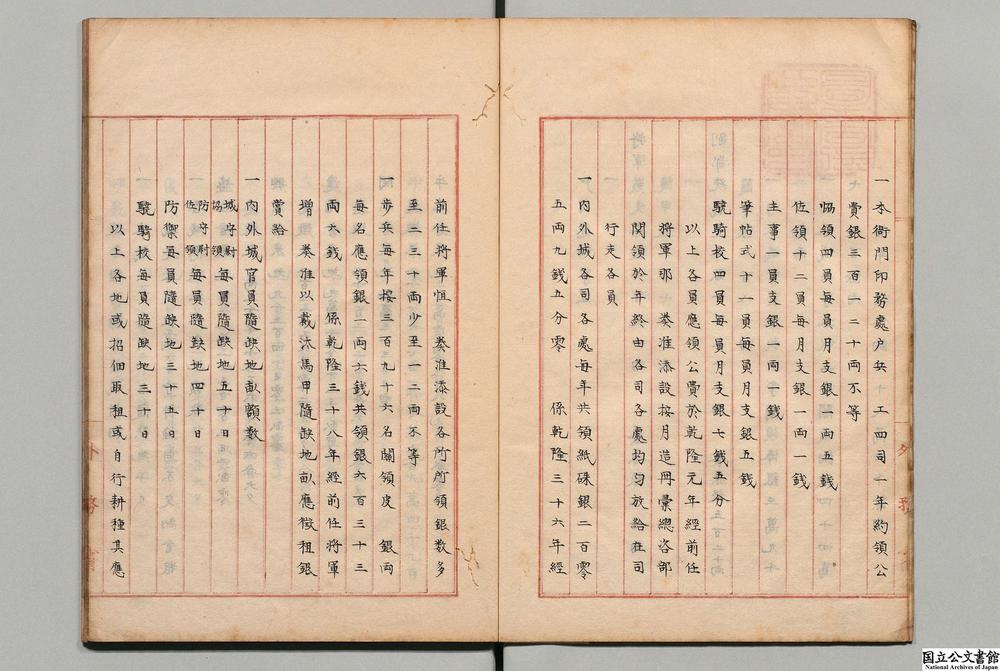 一本衙門印務處户兵工四司一年約領公
費銀三百一二十兩不等
協領四員每員月支銀一兩五錢
佐領十二員每月支銀一兩一錢
主事一員支銀一兩一錢
筆帖式十一員每員月支銀五錢
驍騎校四員每員月支銀七錢五分
以上各員應領公費於乾隆元年經前任
將軍那 奏准添設按月造冊彙總咨部
関領於年終由各司各處均勻放給在司
行走各員
一內外城各司各處每年共領紙硃銀二百零
五兩九錢五分零 係乾隆三十六年經
前任將軍恒 奏准添設各所所領銀数多
至二三十兩少至一二兩不等
一步兵每年按三百九十六名關領皮 銀兩
每名應領銀一兩六錢共領銀六百三十三
兩六錢 係乾隆三十八年經前任將軍
增 奏准以裁汰馬甲隨缺地畝應徵租銀
賞給
一內外城官員隨缺地畝額数
城守尉
協領 每員隨缺地五十日
一防守尉
佐領 每員隨缺地四十日
防禦每員隨缺地三十五日
一驍騎校每員隨缺地三十日
以上各地或招佃取租或自行耕種其應
外務省
国立公文書館
National Archives of Japan